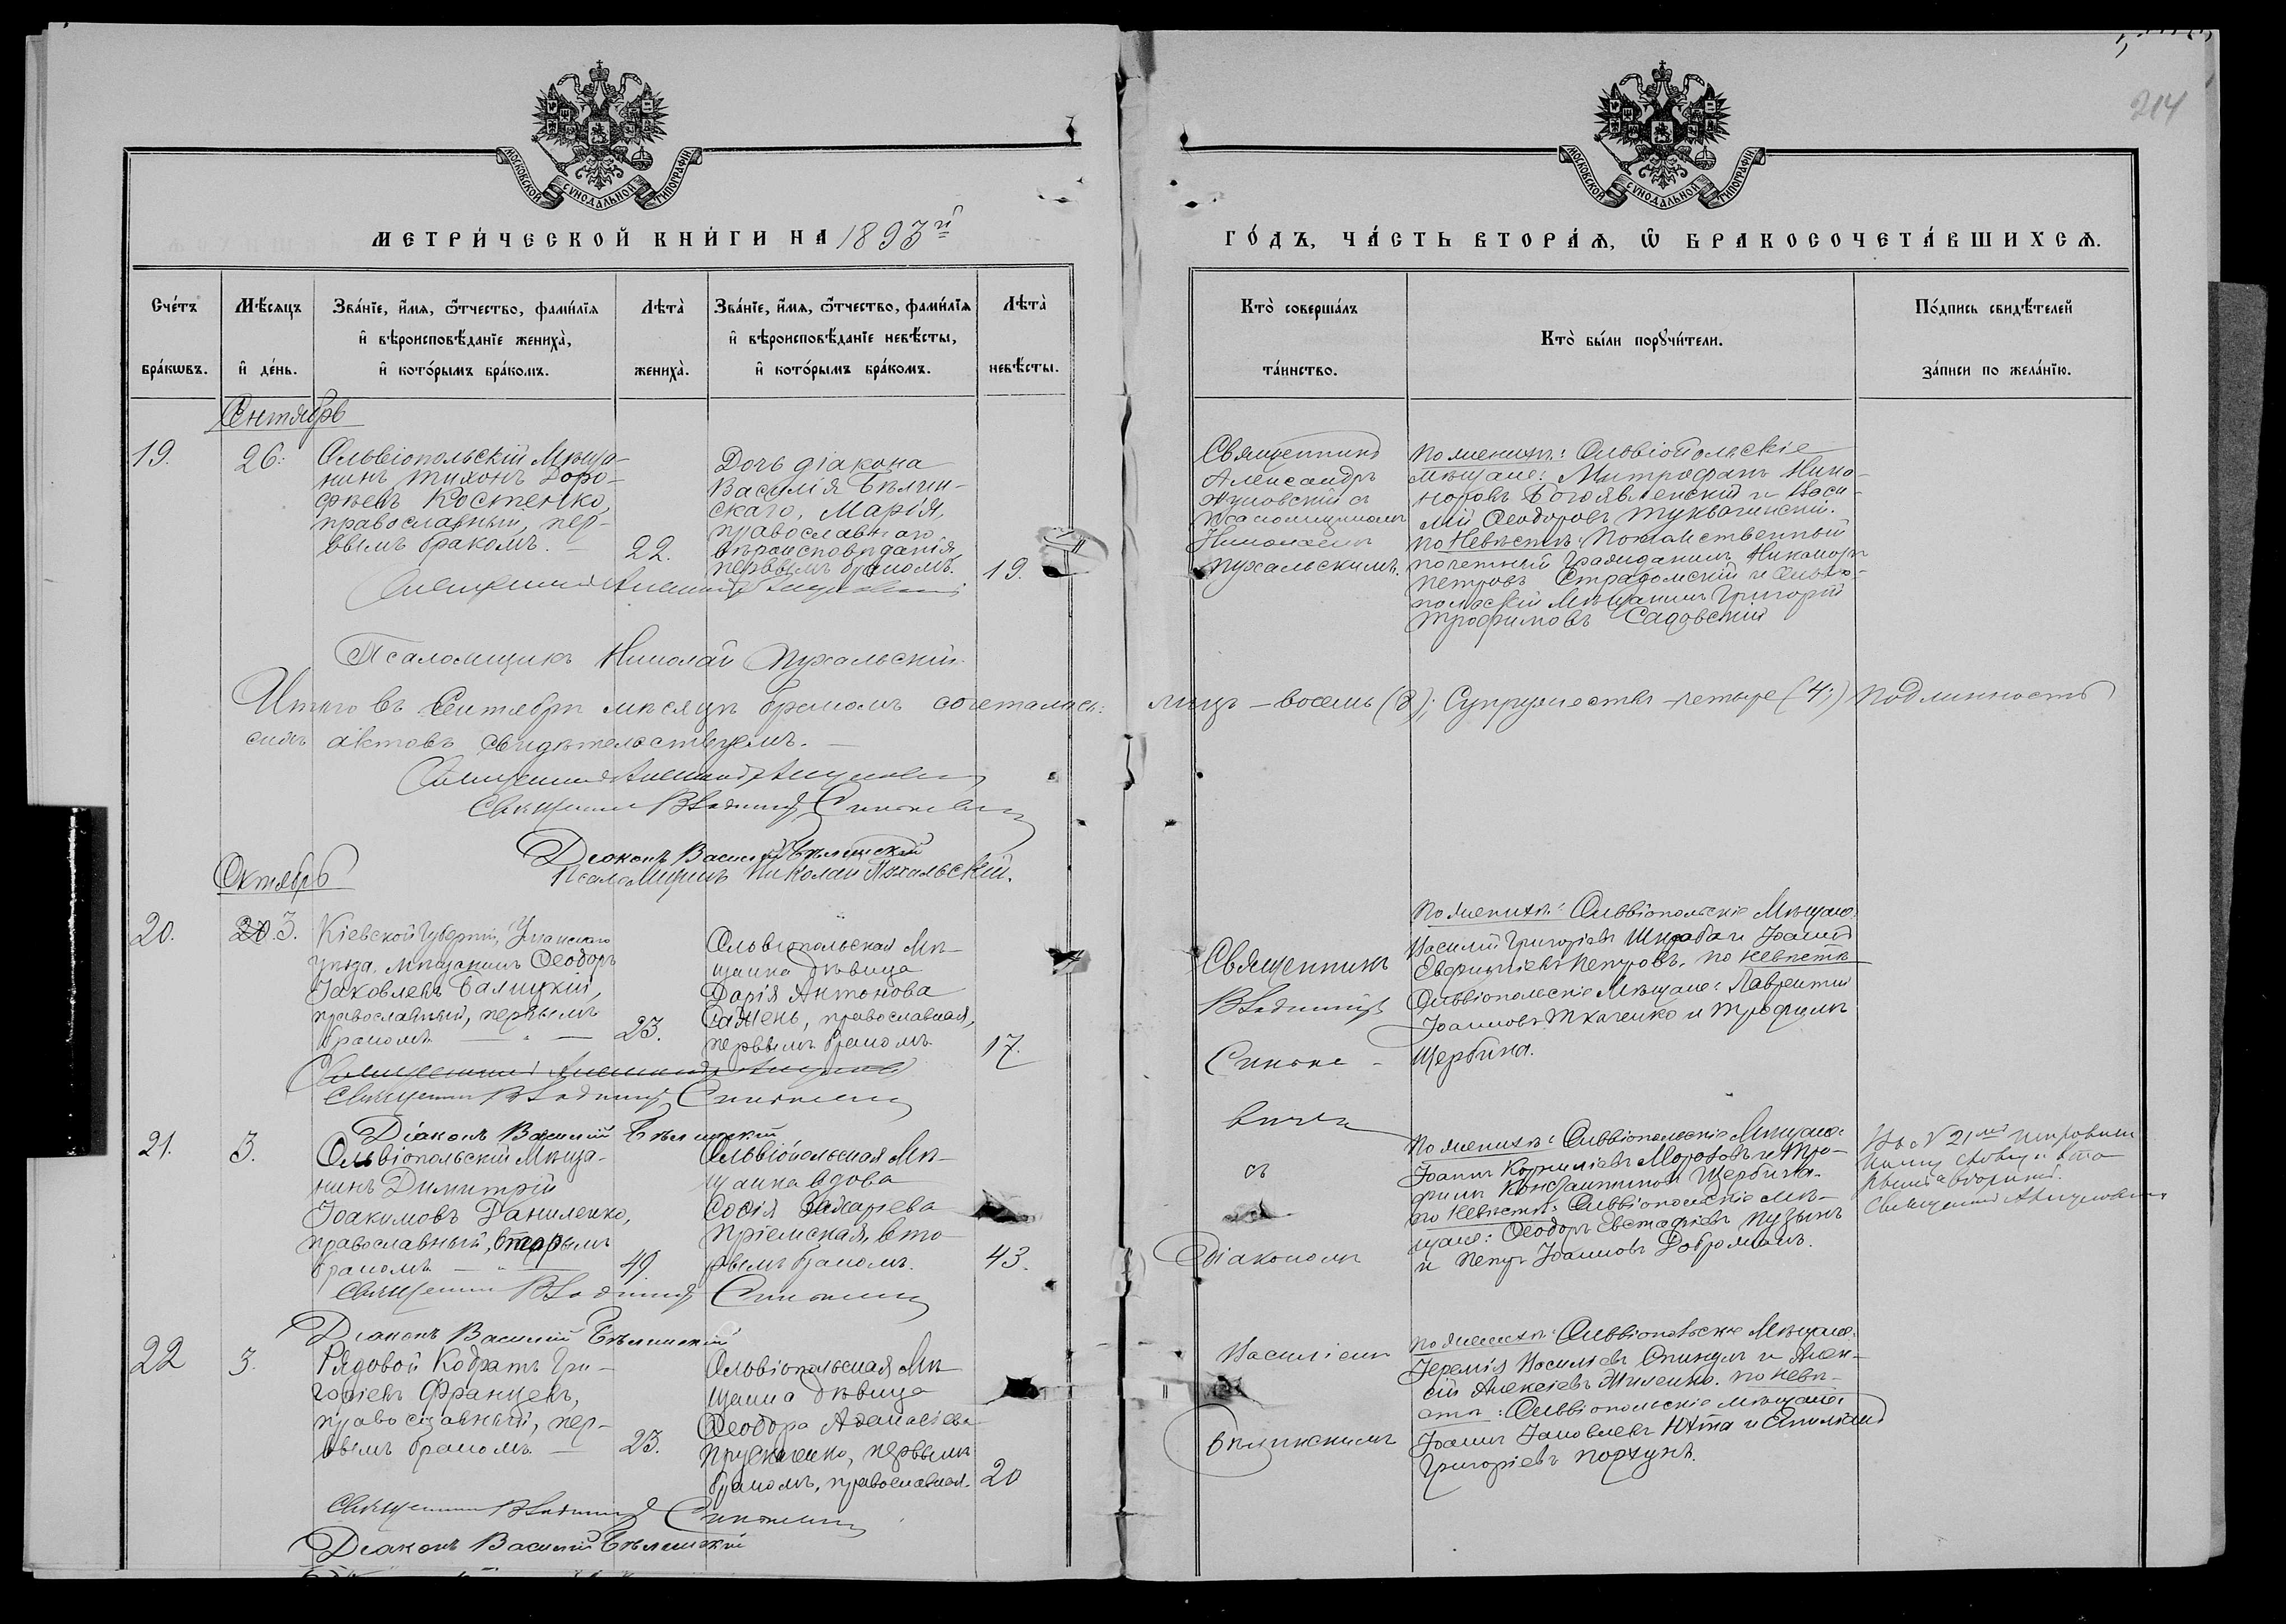 214
МОСКОВСКОЙ СУНОДАЛЬНОЙ ТИПОГРАФІИ.
МОСКОВСКОЙ СУНОДАЛЬНОЙ ТИПОГРАФІИ.
МЕТРИ́ЧЕСКОЙ КНИ́ГИ НА 1893й
ГО́ДЪ, ЧА́СТЬ ВТОРА́Ѧ, Ѡ БРАКОСОЧЕТА́ВШИХСѦ.
Сче́тъ бра́кѡвъ.
Мѣ́сѧцъ и҆ де́нь.
Зва́нїе, и҆́мѧ, ѻ҆́тчество, фами́лїѧ
и҆ вѣроисповѣ́данїе жениха̀,
и҆ кото́рымъ бра́комъ.
Лѣта̀ жениха̀.
Зва́нїе, и҆́мѧ, ѻ҆́тчество, фами́лїѧ
и҆ вѣроисповѣ́данїе невѣ́сты,
и҆ кото́рымъ бра́комъ.
Лѣта̀ невѣ́сты.
Кто̀ соверша́лъ та́инство.
Кто̀ бы́ли порꙋчи́тели.
По́дпись свидѣ́телей за́писи по жела́нїю.
Сентябрь
19.
26.
Ольвіопольскій Мѣща-
нинъ Тихонъ Доро-
феевъ Костенко,
православный, пер-
вымъ бракомъ.
22.
Дочь діакона
Василія Бѣлин-
скаго, Марія,
православнаго
вѣроисповѣданія,
первымъ бракомъ.
19.
Священникъ
Александръ
Псаломщикомъ
Николаемъ
Пухальскимъ.
По женихѣ: Ольвіопольскіе
мѣщане: Митрофанъ Ника-
норовъ Богоявленскій и Васи-
лій Ѳеодоровъ
По Невѣстѣ: Потомственный
почетный гражданинъ Никаноръ
Петровъ Страдомскій и Ольвіо-
польскій Мѣщанинъ Григорій
Трофимовъ Садовскій
Священникъ Александръ
Псаломщикъ Николай Пухальскій.
Итого въ Сентябрѣ мѣсяцѣ бракомъ сочетались: лицъ – восемь (8); Супружествъ – четыре (4;) Подлинность
сихъ актовъ свидѣтельствуемъ.
Священникъ Александръ
Священникъ Владиміръ Синькевич
Діаконъ Василій Бѣлинскій
Псаломщикъ Николай Пухальскій.
Октябрь
20.
20. 3.
Кіевской Губерніи, Уманскаго
уѣзда, мѣщанинъ Ѳеодоръ
Іаковлевъ Балицкій,
православный, первымъ
бракомъ.
23.
Ольвіопольская Мѣ-
щанка дѣвица
Дарія Антонова
Сажень, православная,
первымъ бракомъ.
17.
Священникъ
Владиміръ
Синьке-
вичъ
съ
Діакономъ
Василіемъ
Бѣлинскимъ
По женихѣ: Ольвіопольскіе Мѣщане:
Василій Григоріевъ Шкраба и Іоаннъ
Евфиміевъ Петровъ. По Невѣстѣ
Ольвіопольскіе Мѣщане: Лаврентій
Іоанновъ Ткаченко и Трофимъ
Щербина.
Священникъ Александръ
Священникъ Владиміръ Синькевич
Діаконъ Василій Бѣлинскій
21.
3.
Ольвіопольскій Мѣща-
нинъ Димитрій
Іоакимовъ Даниленко,
православный, вторымъ
бракомъ.
49.
Ольвіопольская Мѣ-
щанка вдова
Софія Захаріева
Пріемская, вто-
рымъ бракомъ.
43.
По женихѣ: Ольвіопольскіе Мѣщане:
Іоаннъ Корниліевъ Морозовъ и Тро-
фимъ Константиновъ Щербина.
По Невѣстѣ: Ольвіопольскіе мѣ-
щане: Ѳеодоръ Евстафіевъ Пузырь
и Петръ Іоанновъ Доброманъ.
Въ № 21мъ
вторымъ.
Священникъ
Священникъ Владиміръ Синькевич
Діаконъ Василій Бѣлинскій
22
3.
Рядовой Кодратъ Гри-
горіевъ Францевъ,
православный, пер-
вымъ бракомъ.
23.
Ольвіопольская Мѣ-
щанка дѣвица
Ѳеодора Аѳанасіева
первымъ
бракомъ, православная.
20
По женихѣ: Ольвіопольскіе Мѣщане:
Іеремія Василіевъ и Алек-
сій Алексіевъ Жиленко. По Невѣ-
стѣ: Ольвіопольскіе мѣщане:
Іоаннъ Іаковлевъ Юхта и Емиліанъ
Григоріевъ
Священникъ Владиміръ Синькевич
Діаконъ Василій Бѣлинскій